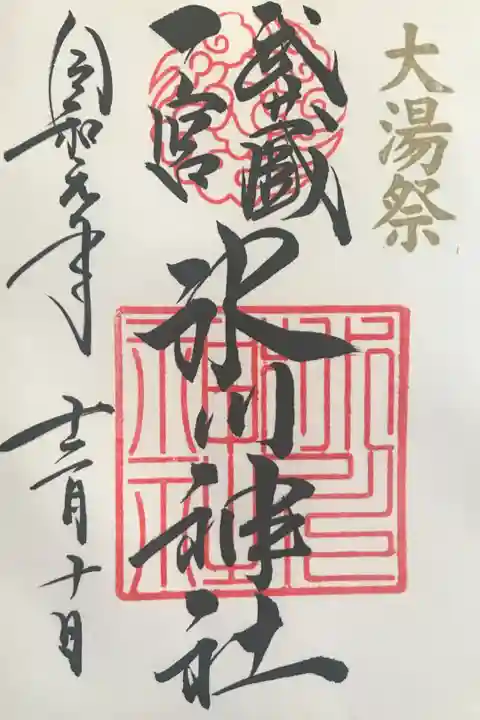 大湯祭
武蔵
一宮
氷川神社
令和元年
十二月十日
氷川
神社